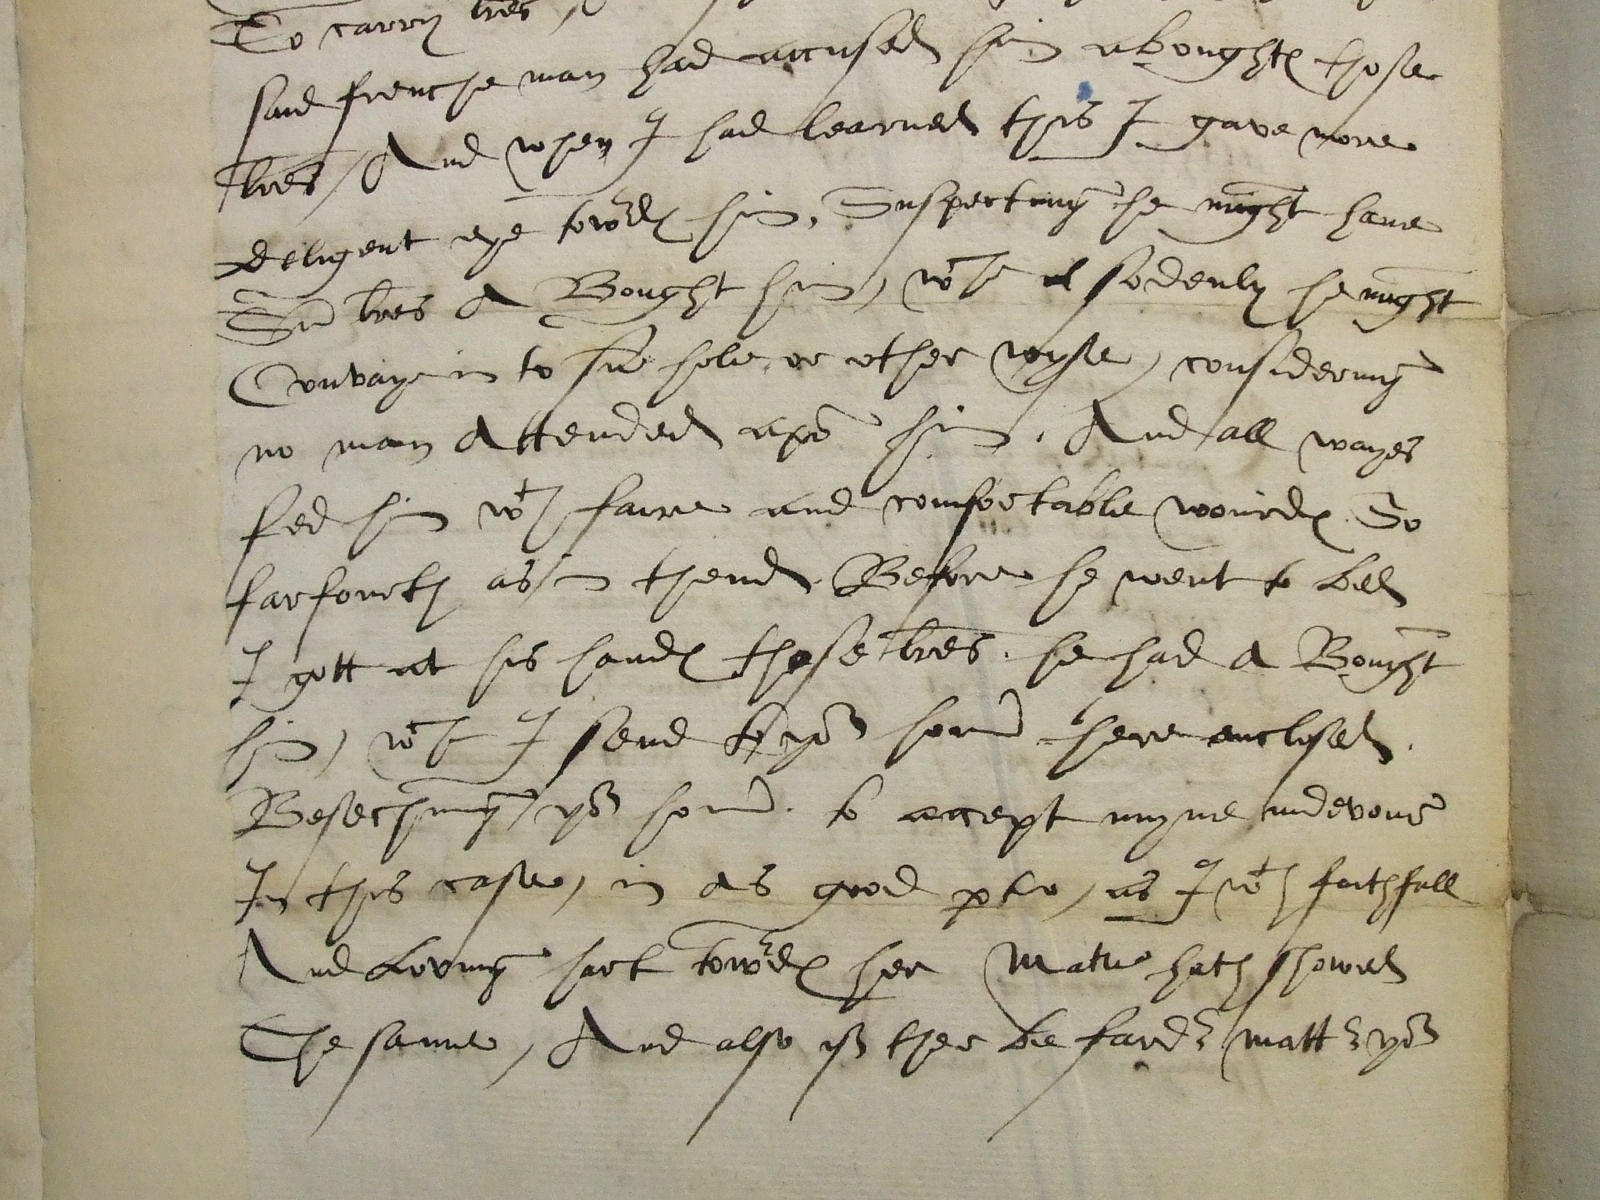 To carry lres /
said frenche man had accused him aboughte those
lres / And when I had learned this I gave more
deligent eye toward him, Suspecting he might have
Su lres A Bought him / wch sodenly he might
Convaye in to su hole or other wyse / considering
no man Attended apo him. And all wayes
fed him wt faire and comfortable wourdes So
farforth as in thend Before he went to bed
I gott at his handes those lres he had A Bought
him / wch I send to yor honor here enclosed.
Beseching yor honor to accept myne indevour
In this case / in as good pte / as I wt faithfull
And Loving hart towardes her Matie hath showed
The same / And also yf ther be fardr mattr yor